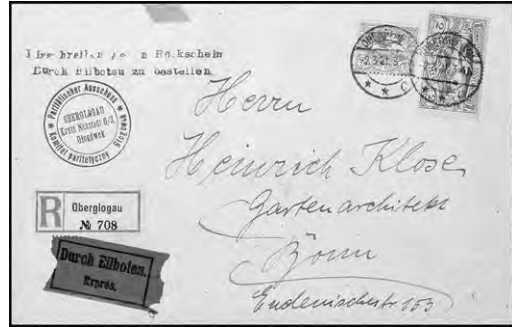 Rückschein
Durch Eilboten zu bestellen
Paritätischer Ausschuss
OBERGLOGAU
Kreis Neustadt O/S.
Głogówek
Komitet parytetyczny
R Oberglogau
№ 708
Durch Eilboten.
Exprès.
Herrn
Heinrich Klose
Gartenarchitekt
Bonn
Endenicherstr 153